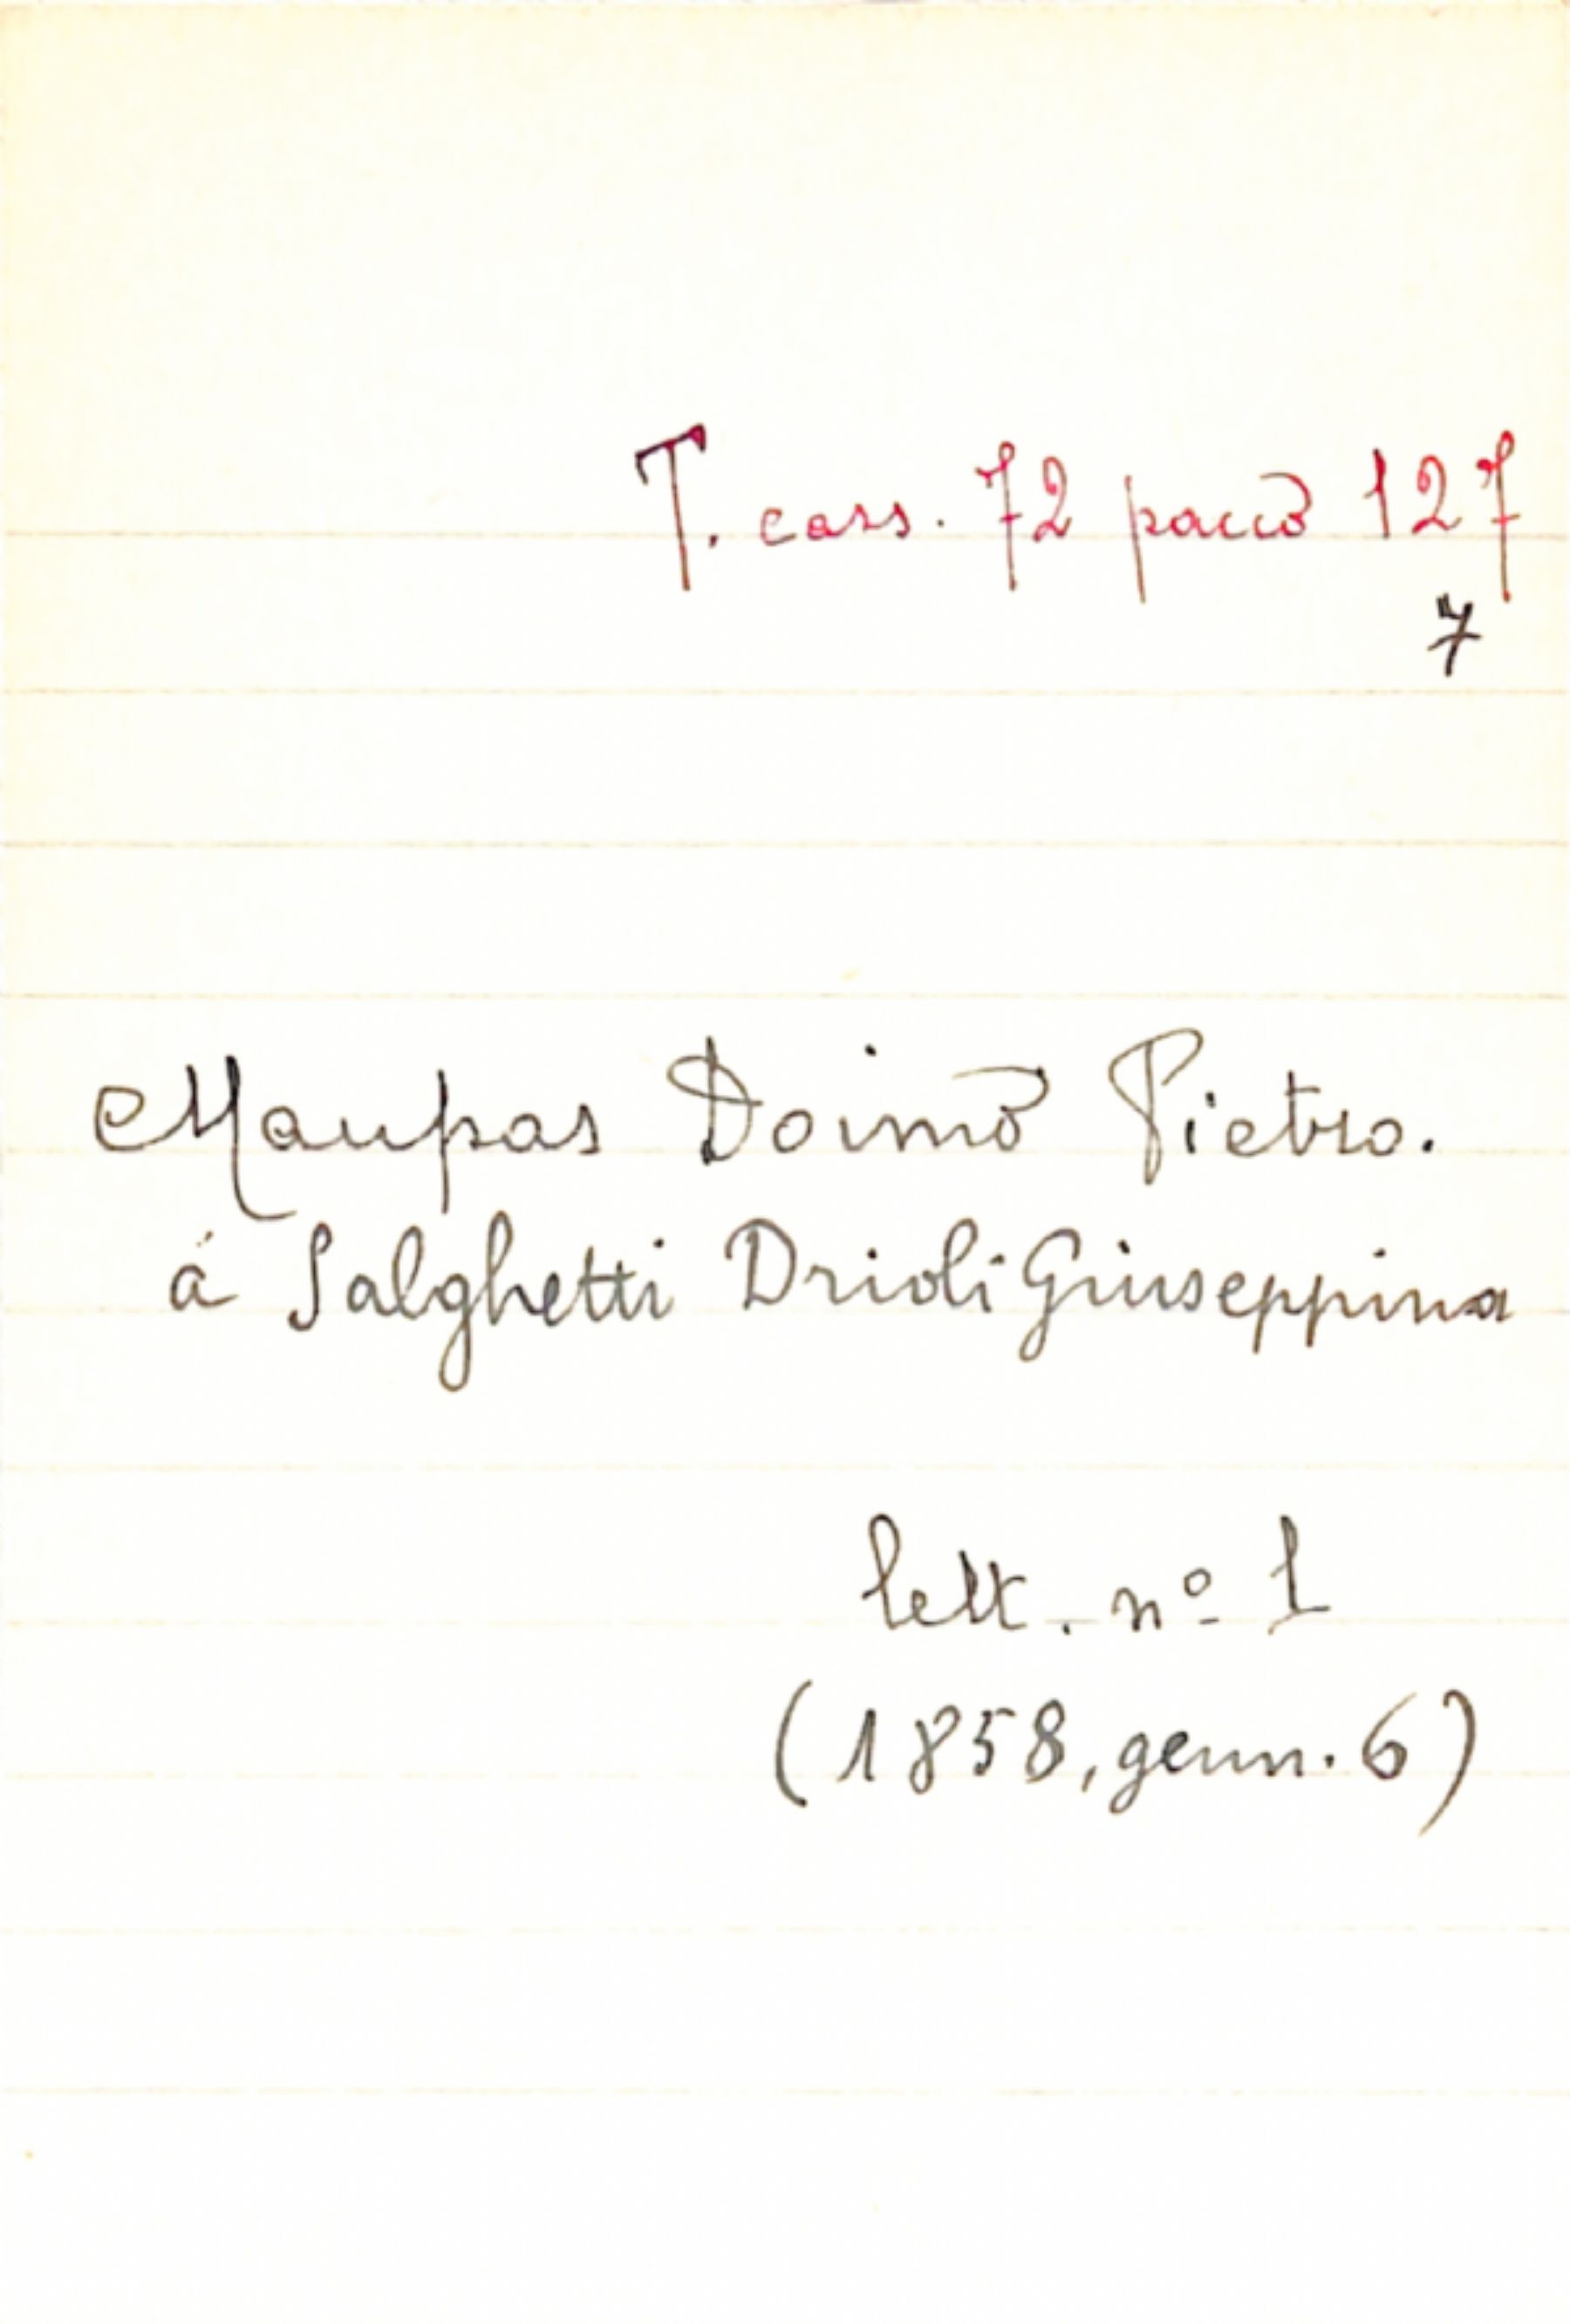 T. cass. 72 pacco 127
7
Maupas Doimo Pietro.
à Salghetti Drioli Giuseppina
lett. nº 1
(1858, genn. 6)